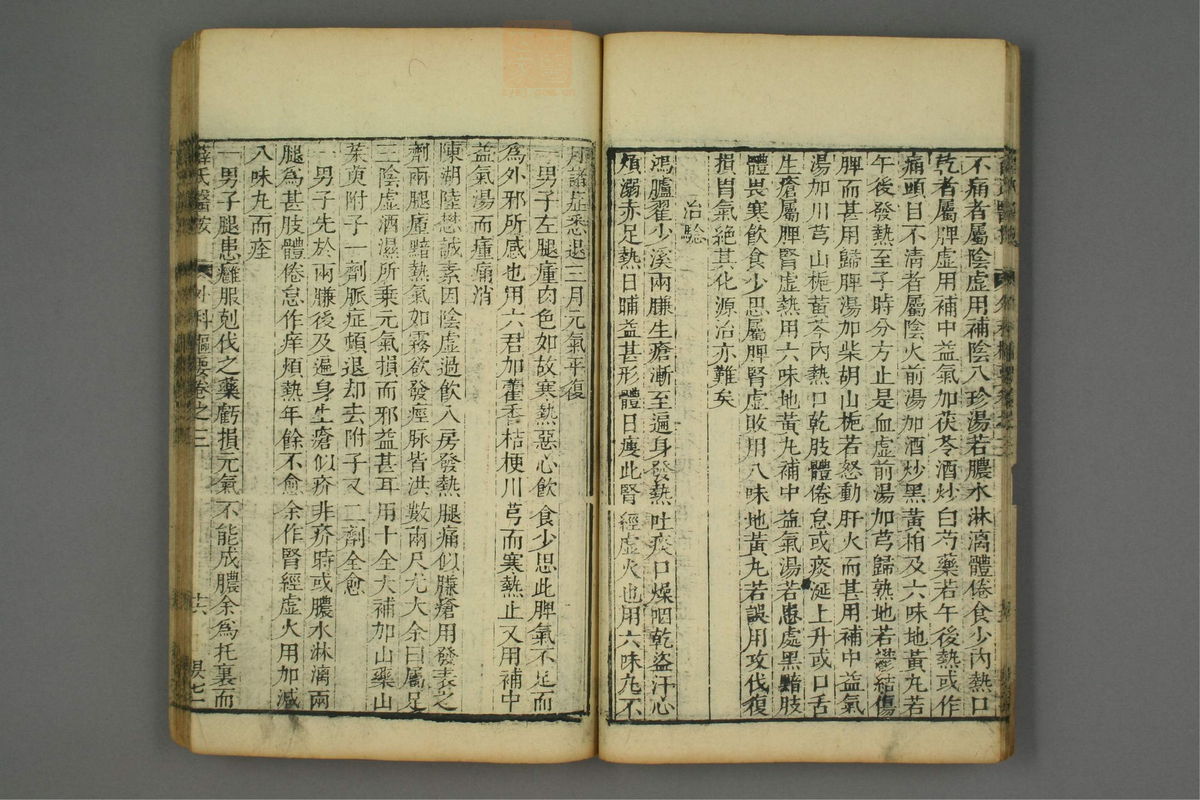 不痛者屬陰虛用補陰八珍湯若膿水淋漓體倦食少內熱口
乾者屬脾虛用補中益氣加茯苓酒炒白芍藥若午後熱或作
痛頭目不清者屬陰火前湯加酒炒黑黃柏及六味地黃丸若
午後發熱至子時分方止是血虛前湯加芎歸熟地若鬱結傷
脾而甚用歸脾湯加柴胡山梔若怒動肝火而甚用補中益氣
湯加川芎山梔黃芩內熱口乾肢體倦怠或痰涎上升或口舌
生瘡屬脾腎虛熱用六味地黃丸補中益氣湯若患處黑黯肢
體畏寒飲食少思屬脾腎虛敗用八味地黃丸若誤用攻伐復
損胃氣絕其化源治亦難矣
治驗
鴻臚翟少溪兩臁生瘡漸至遍身發熱吐痰口燥咽乾盜汗心
煩溺赤足熱日晡益甚形體日瘦此腎經虛火也用六味丸不
月諸症悉退三月元氣平復
一男子左腿瘇肉色如故寒熱惡心飲食少思此脾氣不足而
為外邪所感也用六君加藿香桔梗川芎而寒熱止又用補中
益氣湯而瘇痛消
陳湖陸懋誠素因陰虛過飲入房發熱腿痛似臁瘡用發表之
劑兩腿瘇黯熱氣如霧欲發痙脉皆洪數兩尺尤大余曰屬足
三陰虛酒濕所乘元氣損而邪益甚耳用十全大補加山藥山
茱萸附子一劑脈症頓退却去附子又二劑全愈
一男子先於兩臁後及遍身生瘡似疥非疥時或膿水淋漓兩
腿為甚肢體倦怠作痒煩熱年餘不愈余作腎經虛火用加減
八味丸而痊
一男子腿患癰服剋伐之藥虧損元氣不能成膿余為托裏而
薛氏醫按
外科樞要卷之三
廿六